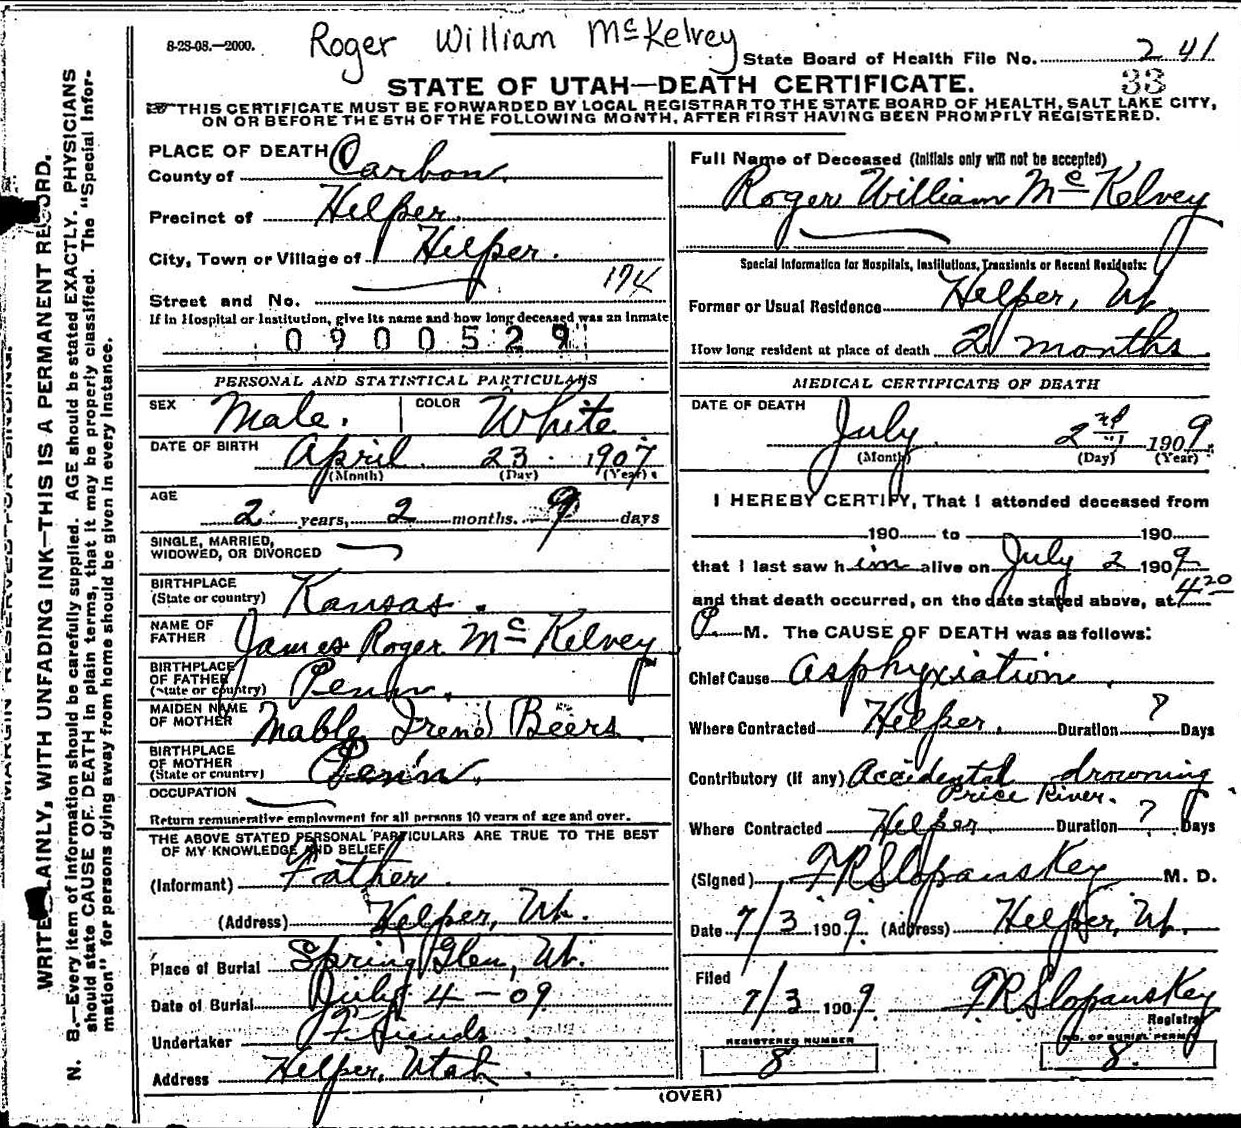 8-28-08.—2000.
Roger William McKelvey
State Board of Health File No. 241
33
STATE OF UTAH—DEATH CERTIFICATE.
THIS CERTIFICATE MUST BE FORWARDED BY LOCAL REGISTRAR TO THE STATE BOARD OF HEALTH, SALT LAKE CITY,
ON OR BEFORE THE 5TH OF THE FOLLOWING MONTH, AFTER FIRST HAVING BEEN PROMPTLY REGISTERED.
MARGIN RESERVED FOR BINDING.
WRITE PLAINLY, WITH UNFADING INK—THIS IS A PERMANENT RECORD.
N. B.—Every item of information should be carefully supplied. AGE should be stated EXACTLY. PHYSICIANS
should state CAUSE OF DEATH in plain terms, that it may be properly classified. The "Special Infor-
mation" for persons dying away from home should be given in every instance.
PLACE OF DEATH
County of Carbon
Precinct of Helper
City, Town or Village of Helper.
174
Street and No.
If in Hospital or Institution, give its name and how long deceased was an inmate
0900529
PERSONAL AND STATISTICAL PARTICULARS
SEX Male. COLOR White
DATE OF BIRTH April 23 1907
(Month) (Day) (Year)
AGE
2 years, 2 months. 9 days
SINGLE, MARRIED,
WIDOWED, OR DIVORCED
BIRTHPLACE
(State or country) Kansas.
NAME OF
FATHER James Roger McKelvey
BIRTHPLACE
OF FATHER
(State or country) Penn.
MAIDEN NAME
OF MOTHER Mable Irene Beers
BIRTHPLACE
OF MOTHER
(State or country) Penn.
OCCUPATION
Return remunerative employment for all persons 10 years of age and over.
THE ABOVE STATED PERSONAL PARTICULARS ARE TRUE TO THE BEST
OF MY KNOWLEDGE AND BELIEF
(Informant) Father
(Address) Helper, Ut.
Place of Burial Spring Glen, Ut.
Date of Burial July 4—09
Undertaker Friends
Address Helper, Utah.
Full Name of Deceased (Initials only will not be accepted)
Roger William McKelvey
Special Information for Hospitals, Institutions, Transients or Recent Residents:
Former or Usual Residence Helper, Ut.
How long resident at place of death 2 months.
MEDICAL CERTIFICATE OF DEATH
DATE OF DEATH
July 2nd 1909.
(Month) (Day) (Year)
I HEREBY CERTIFY, That I attended deceased from
190 to 190
that I last saw him alive on July 2 1909
and that death occurred, on the date stated above, at 4 20
P. M. The CAUSE OF DEATH was as follows:
Chief Cause Asphyxiation.
Where Contracted Helper. Duration ? Days
Contributory (if any) Accidental drowning
Price River.
Where Contracted Helper Duration ? Days
(Signed) F R Slopansky M. D.
Date 7/3 1909. (Address) Helper, Ut.
Filed
7/3 1909. F. R. Slopansky
Registrar
REGISTERED NUMBER NO. OF BURIAL PERMIT
8 8.
(OVER)